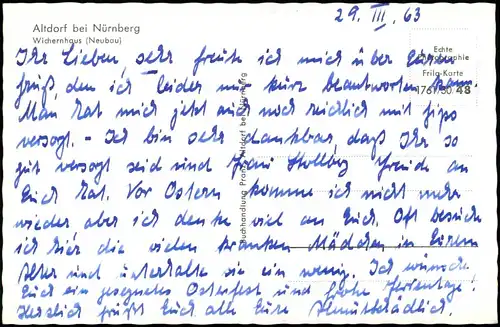 Altdorf bei Nürnberg
Wichernhaus (Neubau)
29. III. 63
Echte Photographie
Frila-Karte
1761/80 48
Buchhandlung Altdorf bei Nürnberg
Ihr Lieben, sehr freute ich mich über Euren
Gruß, den ich leider nur kurz beantworten kann.
Man hat mich jetzt auch noch reichlich mit Gips
versorgt. - Ich bin sehr dankbar, daß Ihr so
gut versorgt seid und Frau Freude an
Euch hat. Vor Ostern komme ich nicht mehr
wieder aber ich denke viel an Euch. Oft besuche
ich hier die vielen kranken Mädchen in Eurem
Alter und unterhalte sie ein wenig. Ich wünsche
Euch ein gesegnetes Osterfest und frohe Ferientage.
Herzlich grüßt Euch alle Eure